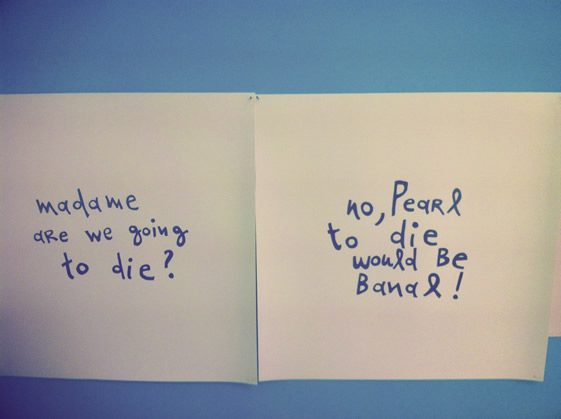 madame
aRe we going
to die?
no, Pearl
to die
would Be
Banal!